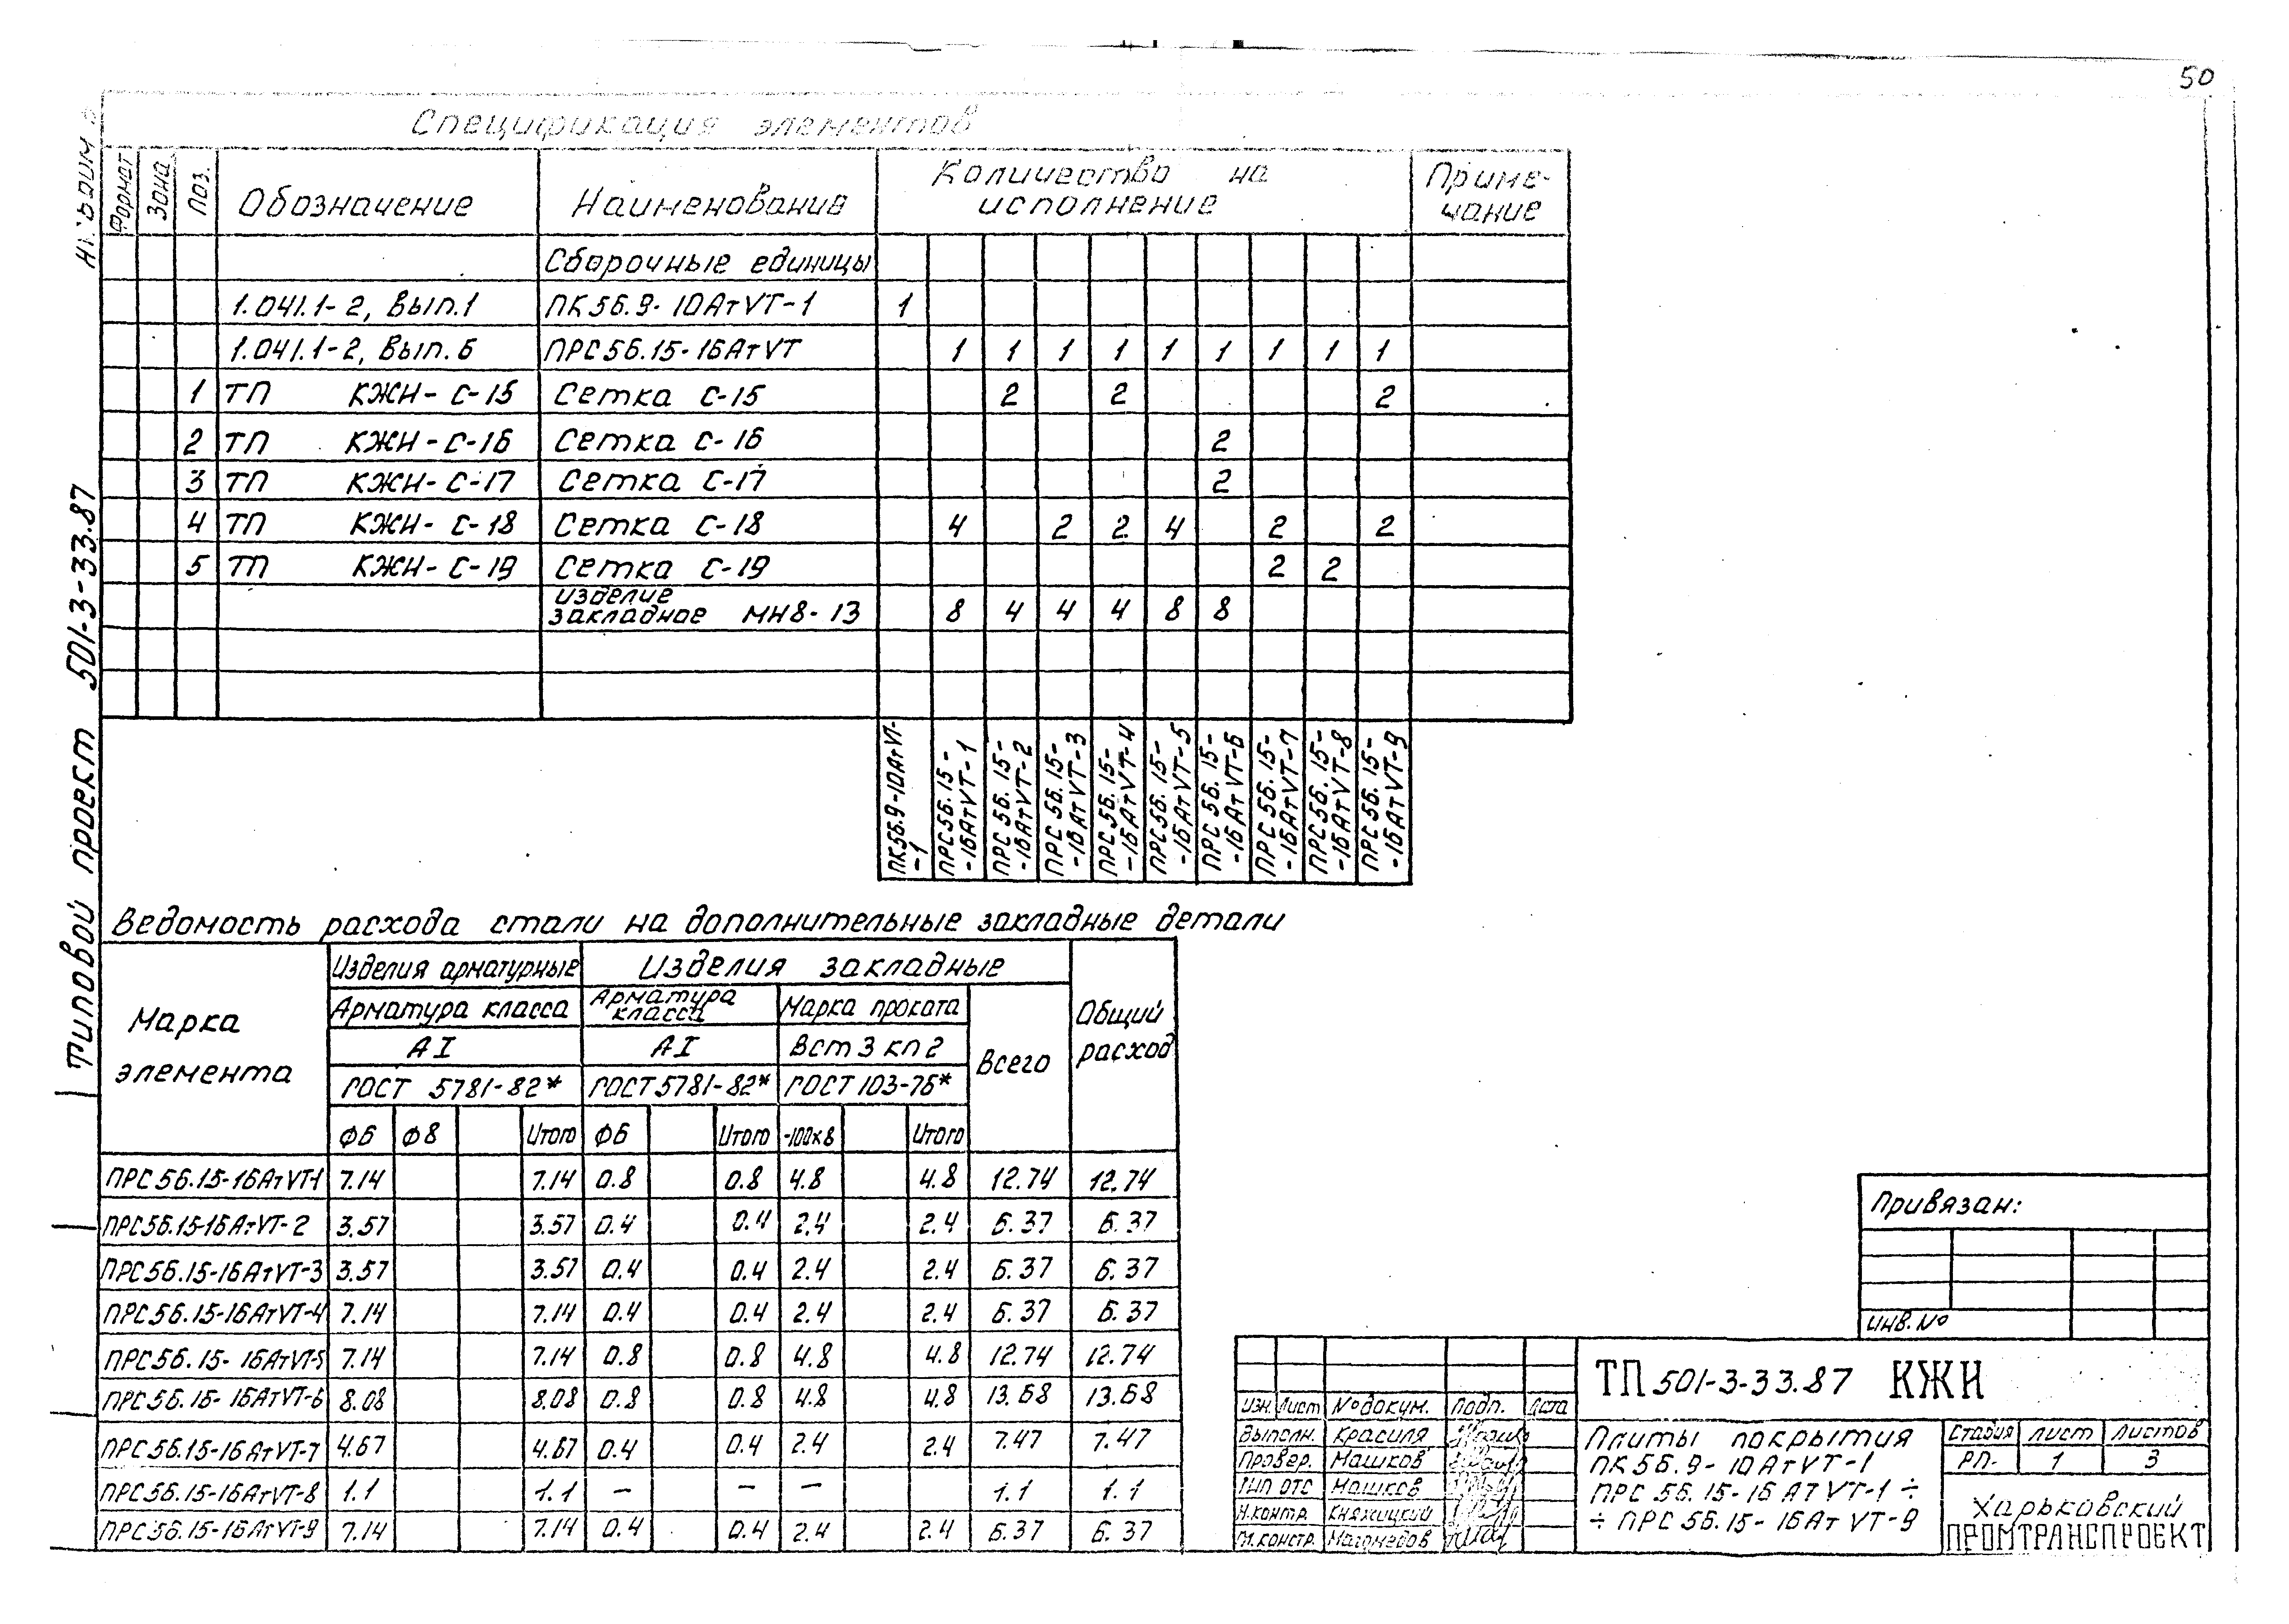 50
Спецификация элементов
Формат Зона Поз. Обозначение Наименование Количество на исполнение Приме-чание
Сборочные единицы
1.041.1-2, Вып.1 ПК56.9-10АтVТ-1 1
1.041.1-2, Вып.6 ПРС56.15-16АтVТ 1 1 1 1 1 1 1 1 1
1 ТП КЖИ-С-15 Сетка С-15 2 2 2
2 ТП КЖИ-С-16 Сетка С-16 2
3 ТП КЖИ-С-17 Сетка С-17 2
4 ТП КЖИ-С-18 Сетка С-18 4 2 2 4 2 2
5 ТП КЖИ-С-19 Сетка С-19 2 2
изделие
закладное МН8-13 8 4 4 4 8 8
ПК56.9-10АтVТ-
-1
ПРС56.15-
-16АтVТ-1
ПРС56.15-
-16АтVТ-2
ПРС56.15-
-16АтVТ-3
ПРС56.15-
-16АтVТ-4
ПРС56.15-
-16АтVТ-5
ПРС56.15-
-16АтVТ-6
ПРС56.15-
-16АтVТ-7
ПРС56.15-
-16АтVТ-8
ПРС56.15-
-16АтVТ-9
Типовой проект 501-3-33.87
Ведомость расхода стали на дополнительные закладные детали
Марка элемента
Изделия арматурные Изделия закладные
Арматура класса Арматура класса Марка проката Всего Общий расход
АI АI Вст3кп2
ГОСТ 5781-82* ГОСТ5781-82* ГОСТ103-76*
Ф6 Ф8 Итого Ф6 Итого -100х8 Итого
ПРС56.15-16АтVТ-1 7.14 7.14 0.8 0.8 4.8 4.8 12.74 12.74
ПРС56.15-16АтVТ-2 3.57 3.57 0.4 0.4 2.4 2.4 6.37 6.37
ПРС56.15-16АтVТ-3 3.57 3.57 0.4 0.4 2.4 2.4 6.37 6.37
ПРС56.15-16АтVТ-4 7.14 7.14 0.4 0.4 2.4 2.4 6.37 6.37
ПРС56.15-16АтVТ-5 7.14 7.14 0.8 0.8 4.8 4.8 12.74 12.74
ПРС56.15-16АтVТ-6 8.08 8.08 0.8 0.8 4.8 4.8 13.68 13.68
ПРС56.15-16АтVТ-7 4.67 4.67 0.4 0.4 2.4 2.4 7.47 7.47
ПРС56.15-16АтVТ-8 1.1 1.1 — — — 1.1 1.1
ПРС56.15-16АтVТ-9 7.14 7.14 0.4 0.4 2.4 2.4 6.37 6.37
Привязан:
ИНВ.№
ТП 501-3-33.87 КЖИ
Изн. Лист №докум. Подп. Дата
Выполн. Красиля
Провер. Машков
ГИП ОТС Машков
Н.контр. Княжицкий
Гл.констр. Магомедов
Плиты покрытия
ПК56.9-10АтVТ-1
ПРС56.15-16АТVТ-1÷
÷ПРС56.15-16АтVТ-9
Стадия Лист Листов
РП- 1 3
Харьковский
ПРОМТРАНСПРОЕКТ